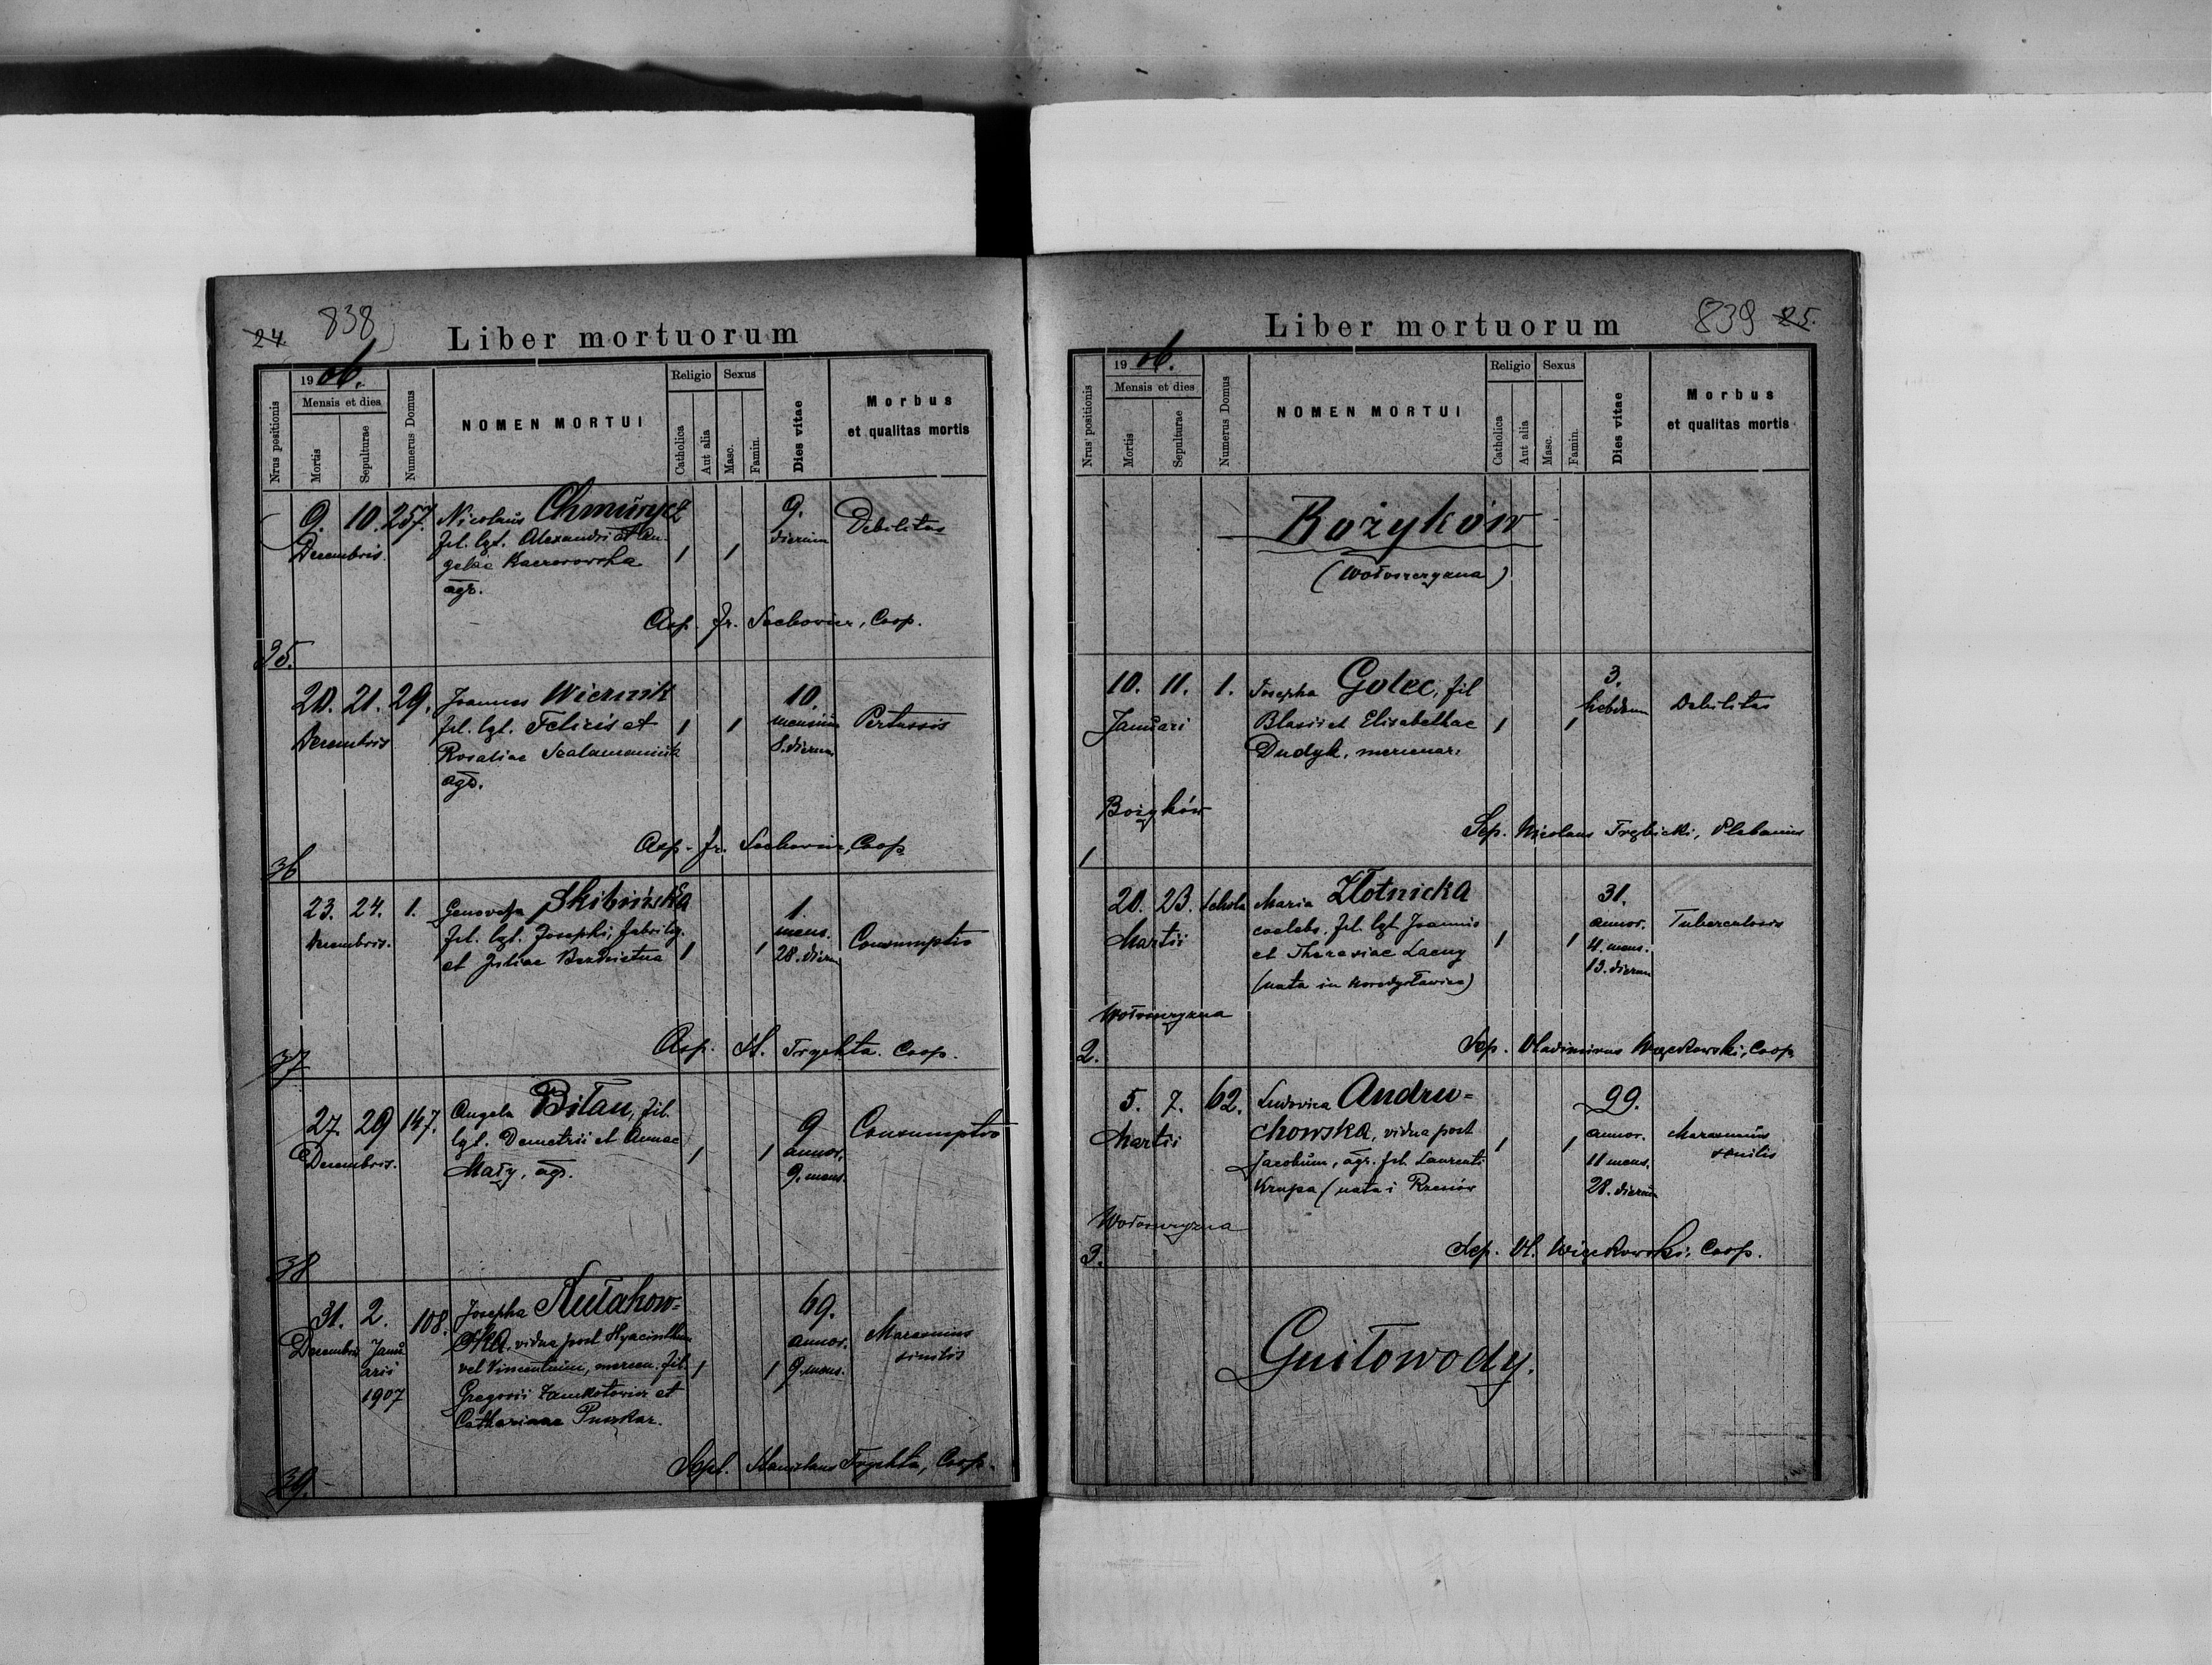 24. 838
Liber mortuorum
Nrus positionis
1906.
Mensis et dies
Mortis
Sepulturae
Numerus Domus
NOMEN MORTUI
Religio
Catholica
Aut alia
Sexus
Masc.
Famin.
Dies vitae
Morbus
et qualitas mortis
9. 10. 257. Nicolaus Chmurycz 9. Debilitas
Decembris. fil. lgt. Alexandri et An- dierum
gelae 1 1
agr.
Asp. Fr. Sochowicz, Coop.
35.
20. 21. 29. Joannes Wiernik 10. Pertussis
Decembris fil. lgt. Felicis et 1 1 mensium
Rosaliae 8. dierum
agr.
Asp. Fr. Sochowicz, Coop.
36
23. 24. 1. Genovefa Skibińska 1. Consumptio
Decembris. fil. lgt. Josephi, fabri lig. mens.
et Juliae 1 1 28. dierum
Asp. St. Trychta. Coop.
37
27. 29 147. Angela Bitau, fil. 9 Consumptio
Decembris. lgt. Demetrii et Annae 1 1 annor.
Mały, agr. 9. mens.
38
31. 2. 108. Josepha Kułakow= 69. Marasmus
Decembris Janu vidua post Hyacinthum annor. sinilis
arii vel Vincentium, mercen. fil. 1 1 9. mens.
1907 Gregorii et
Catharinae Puszkar.
Sepl. Stanislaus Trychta, Coop.
39.
Liber mortuorum
839 25.
Nrus positionis
1906.
Mensis et dies
Mortis
Sepulturae
Numerus Domus
NOMEN MORTUI
Religio
Catholica
Aut alia
Sexus
Masc.
Famin.
Dies vitae
Morbus
et qualitas mortis
Bożyków
(Wołoszczyzna)
10. 11. 1. Josepha Golec, fil 3. Debilitas
Januari Blasii et Elisabethae 1 1 hebdom
Dudyk, mercenar.
Bożyków
Sep. Nicolaus Trzbicki, Plebanus
1
20. 23. schola Maria Złotnicka 31. Tuberculosis
Martii caelebs. fil. lgt. Joannis 1 1 annor.
et Theresiae Lacny 4. mens.
(nata in ) 13. dierum
Wołoszczyzna
Sep. Vladimirus Więckowski, Coop
2.
5. 7. 62. Ludovica Andru= 99. Marasmus
Martii chowska, vidua post 1 1 annor. senilis
Jacobum, agr. fil. Laurenti 11 mens.
Krupa (nata i 28. dierum
Wołoszczyzna
Sep. Vl. Więckowski, Coop.
3.
Gniłowody.